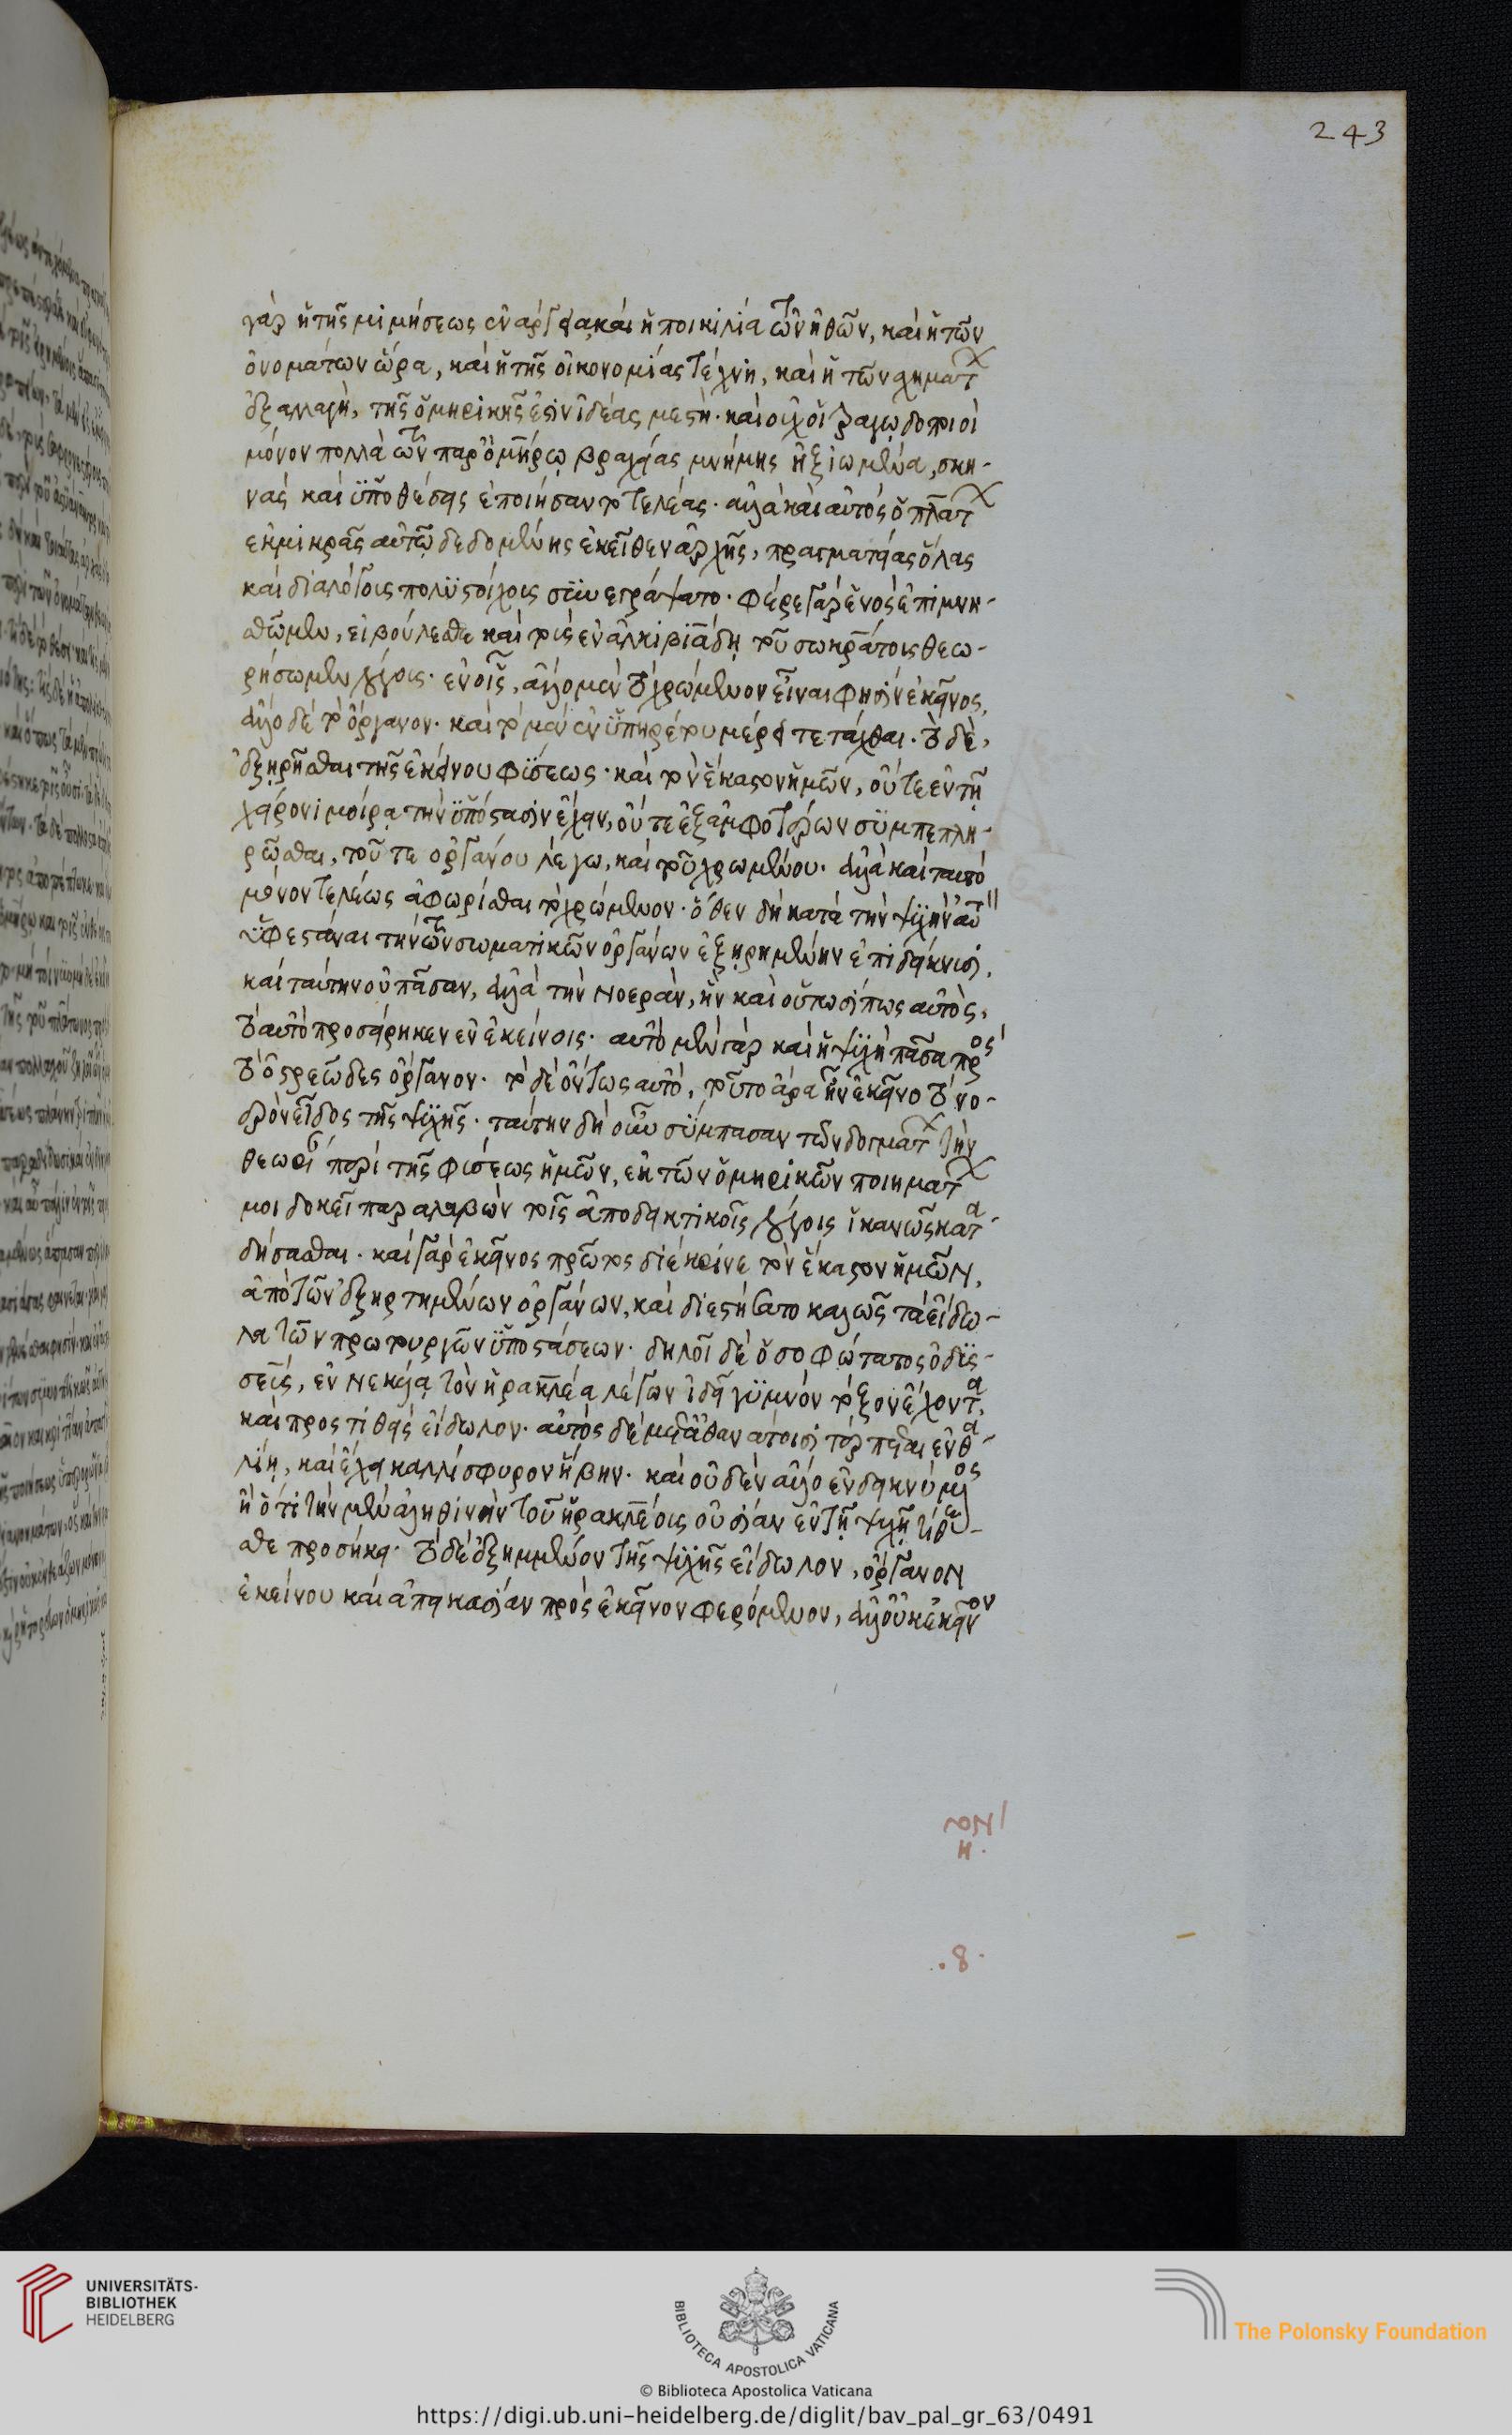 243
γὰρ ἡ τῆς μιμήσεως ἐνάργεια καὶ ἡ ποικιλία τῶν ἠθῶν, καὶ ἡ τῶν
ὀνομάτων ὥρα, καὶ ἡ τῆς οἰκονομίας τέχνη, καὶ ἡ τῶν σχημάτων
ἐξαλλαγὴ, τῆς ὁμηρικῆς ἐστὶν ἰδέας μεστὴ· καὶ οὐχ οἱ τραγῳδοποιοὶ
μόνον πολλὰ τῶν παρ' ὁμήρῳ βραχείας μνήμης ἠξιωμένα, σκη-
νὰς καὶ ὑποθέσεις ἐποίησαν τὸ τελέας· ἀλλὰ καὶ αὐτὸς ὁ πλάτων
ἐκ μικρᾶς αὐτῷ δεδομένης ἐκεῖθεν ἀρχῆς, πραγματείας ὅλας
καὶ διαλόγους πολυστίχους συνεγράψατο· φέρε γὰρ ἑνὸς ἐπιμνη-
σθῶμεν, εἰ βούλεσθε καὶ τοὺς ἐν ἀλκιβιάδῃ τοῦ σωκράτους θεω-
ρήσωμεν λόγους· ἐν οἷς, ἄλλο μὲν τὸ χρώμενον εἶναι φησὶν ἐκεῖνος,
ἄλλο δὲ τὸ ὄργανον· καὶ τὸ μὲν ἐν ὑπηρέτου μέρει τετάχθαι· τὸ δὲ,
ἐξῃρῆσθαι τῆς ἐκείνου φύσεως· καὶ τὸν ἕκαστον ἡμῶν, οὔτε ἐν τῇ
χείρονι μοίρᾳ τὴν ὑπόστασιν ἔχειν, οὔτε ἐξ ἀμφοτέρων συμπεπλη-
ρῶσθαι, τοῦ τε ὀργάνου λέγω, καὶ τοῦ χρωμένου· ἀλλὰ κατ' αὐτὸ
μόνον τελέως ἀφωρίσθαι τὸ χρώμενον· ὅθεν δὴ κατὰ τὴν ψυχὴν αὐτὴν
ὑφεστάναι τὴν τῶν σωματικῶν ὀργάνων ἐξῃρημένην ἐπιδείκνυσι,
καὶ ταύτην οὐ πᾶσαν, ἀλλὰ τὴν νοερὰν, ἣν καὶ οὕτωσί πως αὐτὸς,
τὸ αὐτὸ προσείρηκεν ἐν ἐκείνοις· αὐτὸ μὲν γὰρ καὶ ἡ ψυχὴ πᾶσα πρὸς
τὸ ὀστρεῶδες ὄργανον· τὸ δὲ ὄντως αὐτὸ, τοῦτο ἄρα ἦν ἐκεῖνο τὸ νο-
ερὸν εἶδος τῆς ψυχῆς· ταύτην δὴ οὖν σύμπασαν τῶν δογμάτων τὴν
θεωρίαν περὶ τῆς φύσεως ἡμῶν, ἐκ τῶν ὁμηρικῶν ποιημάτων
μοι δοκεῖ παραλαβὼν τοῖς ἀποδεικτικοῖς λόγοις ἱκανῶς κατα-
δήσασθαι· καὶ γὰρ ἐκεῖνος πρῶτος διέκρινε τὸν ἕκαστον ἡμῶν,
ἀπὸ τῶν ἐξηρτημένων ὀργάνων, καὶ διεστήσατο καλῶς τὰ εἴδω-
λα τῶν πρωτουργῶν ὑποστάσεων· δηλοῖ δὲ ὁ σοφώτατος ὀδυσ-
σεὺς, ἐν νεκυίᾳ τὸν ἡρακλέα λέγων ἰδεῖν γυμνὸν τόξον ἔχοντα,
καὶ προστιθεὶς εἴδωλον· αὐτὸς δὲ μετ' ἀθανάτοισι τέρπεται ἐν θα-
λίῃ, καὶ ἔχει καλλίσφυρον ἥβην· καὶ οὐδὲν ἄλλο ἐνδεικνύμενος
ἢ ὅτι τὴν μὲν ἀληθινὴν τοῦ ἡρακλέους οὐσίαν ἐν τῇ ψυχῇ τίθε-
σθαι προσήκει· τὸ δὲ ἐξημμένον τῆς ψυχῆς εἴδωλον, ὄργανον
ἐκείνου καὶ ἀπεικασίαν πρὸς ἐκεῖνον φερόμενον, ἀλλ' οὐκ ἐκεῖνον
UNIVERSITÄTS-
BIBLIOTHEK
HEIDELBERG
BIBLIOTECA APOSTOLICA VATICANA
© Biblioteca Apostolica Vaticana
The Polonsky Foundation
https://digi.ub.uni-heidelberg.de/diglit/bav_pal_gr_63/0491